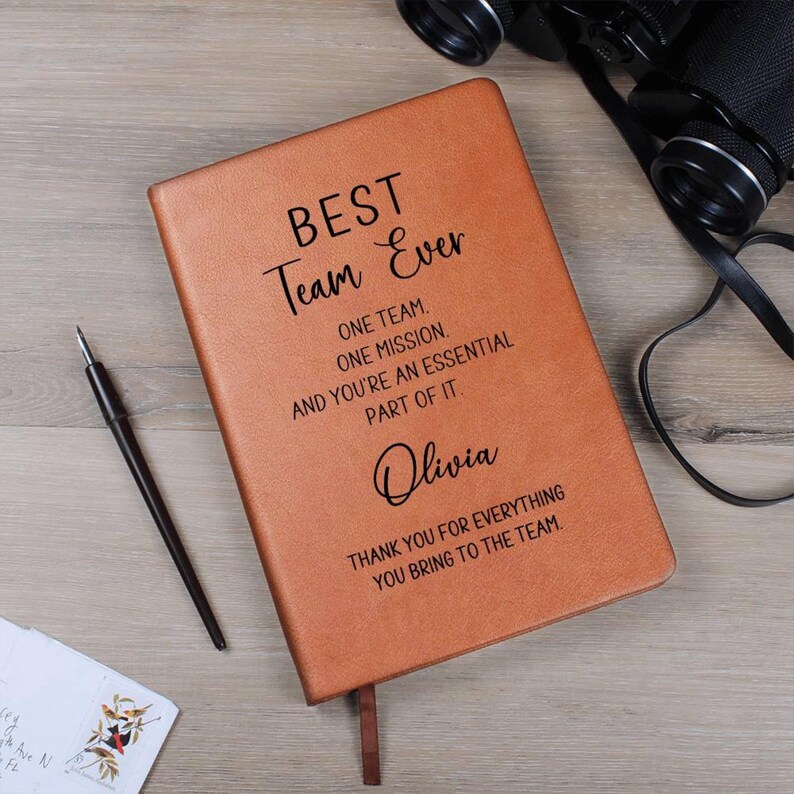 BEST
Team Ever
ONE TEAM.
ONE MISSION.
AND YOU'RE AN ESSENTIAL
PART OF IT.
Olivia
THANK YOU FOR EVERYTHING
YOU BRING TO THE TEAM.
Ave N
FL